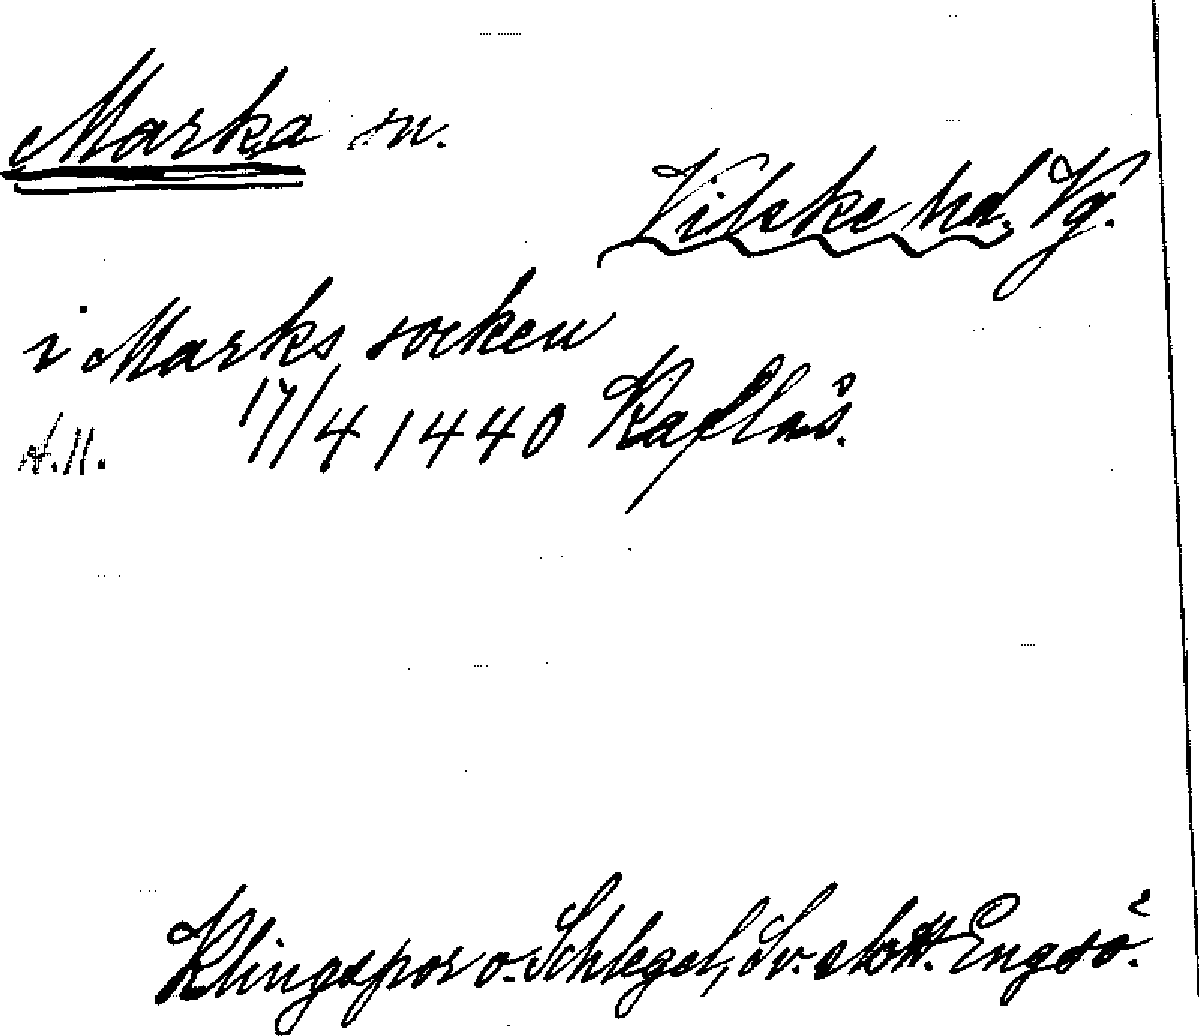 Marka sn.
Vilske hd. Vg.
i Marks socken
A.11. 17/4 1440 Kaflås.
Klingspor o. Schlegel, Sv. slott. Engsö.